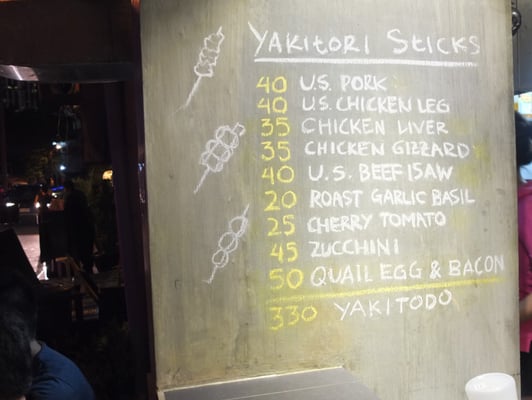 YAKITORI STICKS
40 U.S. PORK
40 U.S. CHICKEN LEG
35 CHICKEN LIVER
35 CHICKEN GIZZARD
40 U.S. BEEF ISAW
20 ROAST GARLIC BASIL
25 CHERRY TOMATO
45 ZUCCHINI
50 QUAIL EGG & BACON
330 YAKITODO